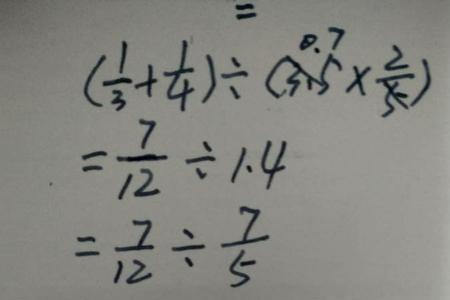 =
(1/3 + 1/4) ÷ (3.5 × 2/5)
0.7
= 7/12 ÷ 1.4
= 7/12 ÷ 7/5